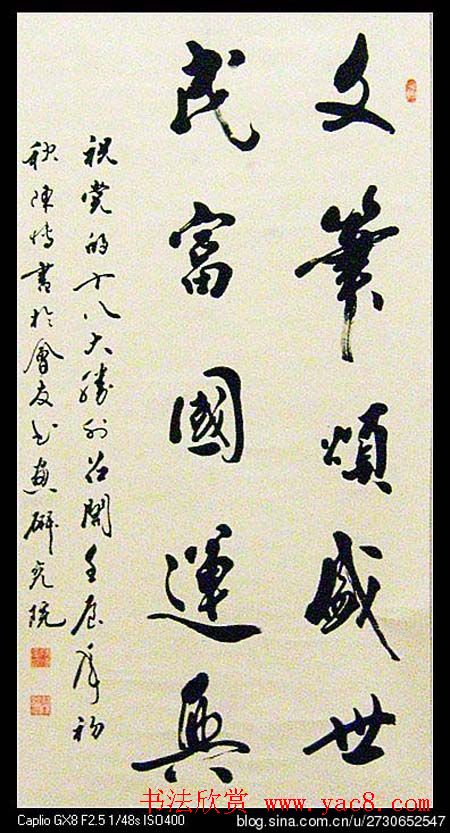 文筆頌盛世
民富國運興
祝党的十八大勝利召開壬辰年初
秋陳博書於會友書畫研究院
书法欣赏 www.yac8.com
Caplio GX8 F2.5 1/48s ISO400
blog.sina.com.cn/u/2730652547